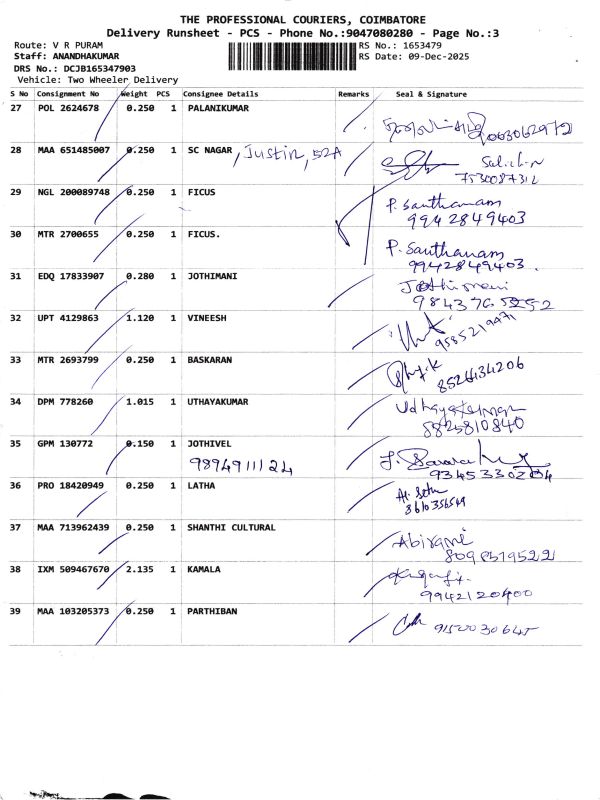 THE PROFESSIONAL COURIERS, COIMBATORE
Delivery Runsheet - PCS - Phone No.:9047080280 - Page No.:3
Route: V R PURAM RS No.: 1653479
Staff: ANANDHAKUMAR RS Date: 09-Dec-2025
DRS No.: DCJB165347903
Vehicle: Two Wheeler Delivery
S No Consignment No Weight PCS Consignee Details Remarks Seal & Signature
27 POL 2624678 0.250 1 PALANIKUMAR
28 MAA 651485007 0.250 1 SC NAGAR , Justin, 52A
7530087312
29 NGL 200089748 0.250 1 FICUS P. Santhanam
9942849403
30 MTR 2700655 0.250 1 FICUS. P. Santhanam
9942849403.
31 EDQ 17833907 0.280 1 JOTHIMANI Jothimani
32 UPT 4129863 1.120 1 VINEESH
9585219471
33 MTR 2693799 0.250 1 BASKARAN
8526434206
34 DPM 778260 1.015 1 UTHAYAKUMAR Udhayakumar
8825810840
35 GPM 130772 0.150 1 JOTHIVEL
9894911124
36 PRO 18420949 0.250 1 LATHA
8610356549
37 MAA 713962439 0.250 1 SHANTHI CULTURAL Abirami
8098519522
38 IXM 509467670 2.135 1 KAMALA
9942120400
39 MAA 103205373 0.250 1 PARTHIBAN